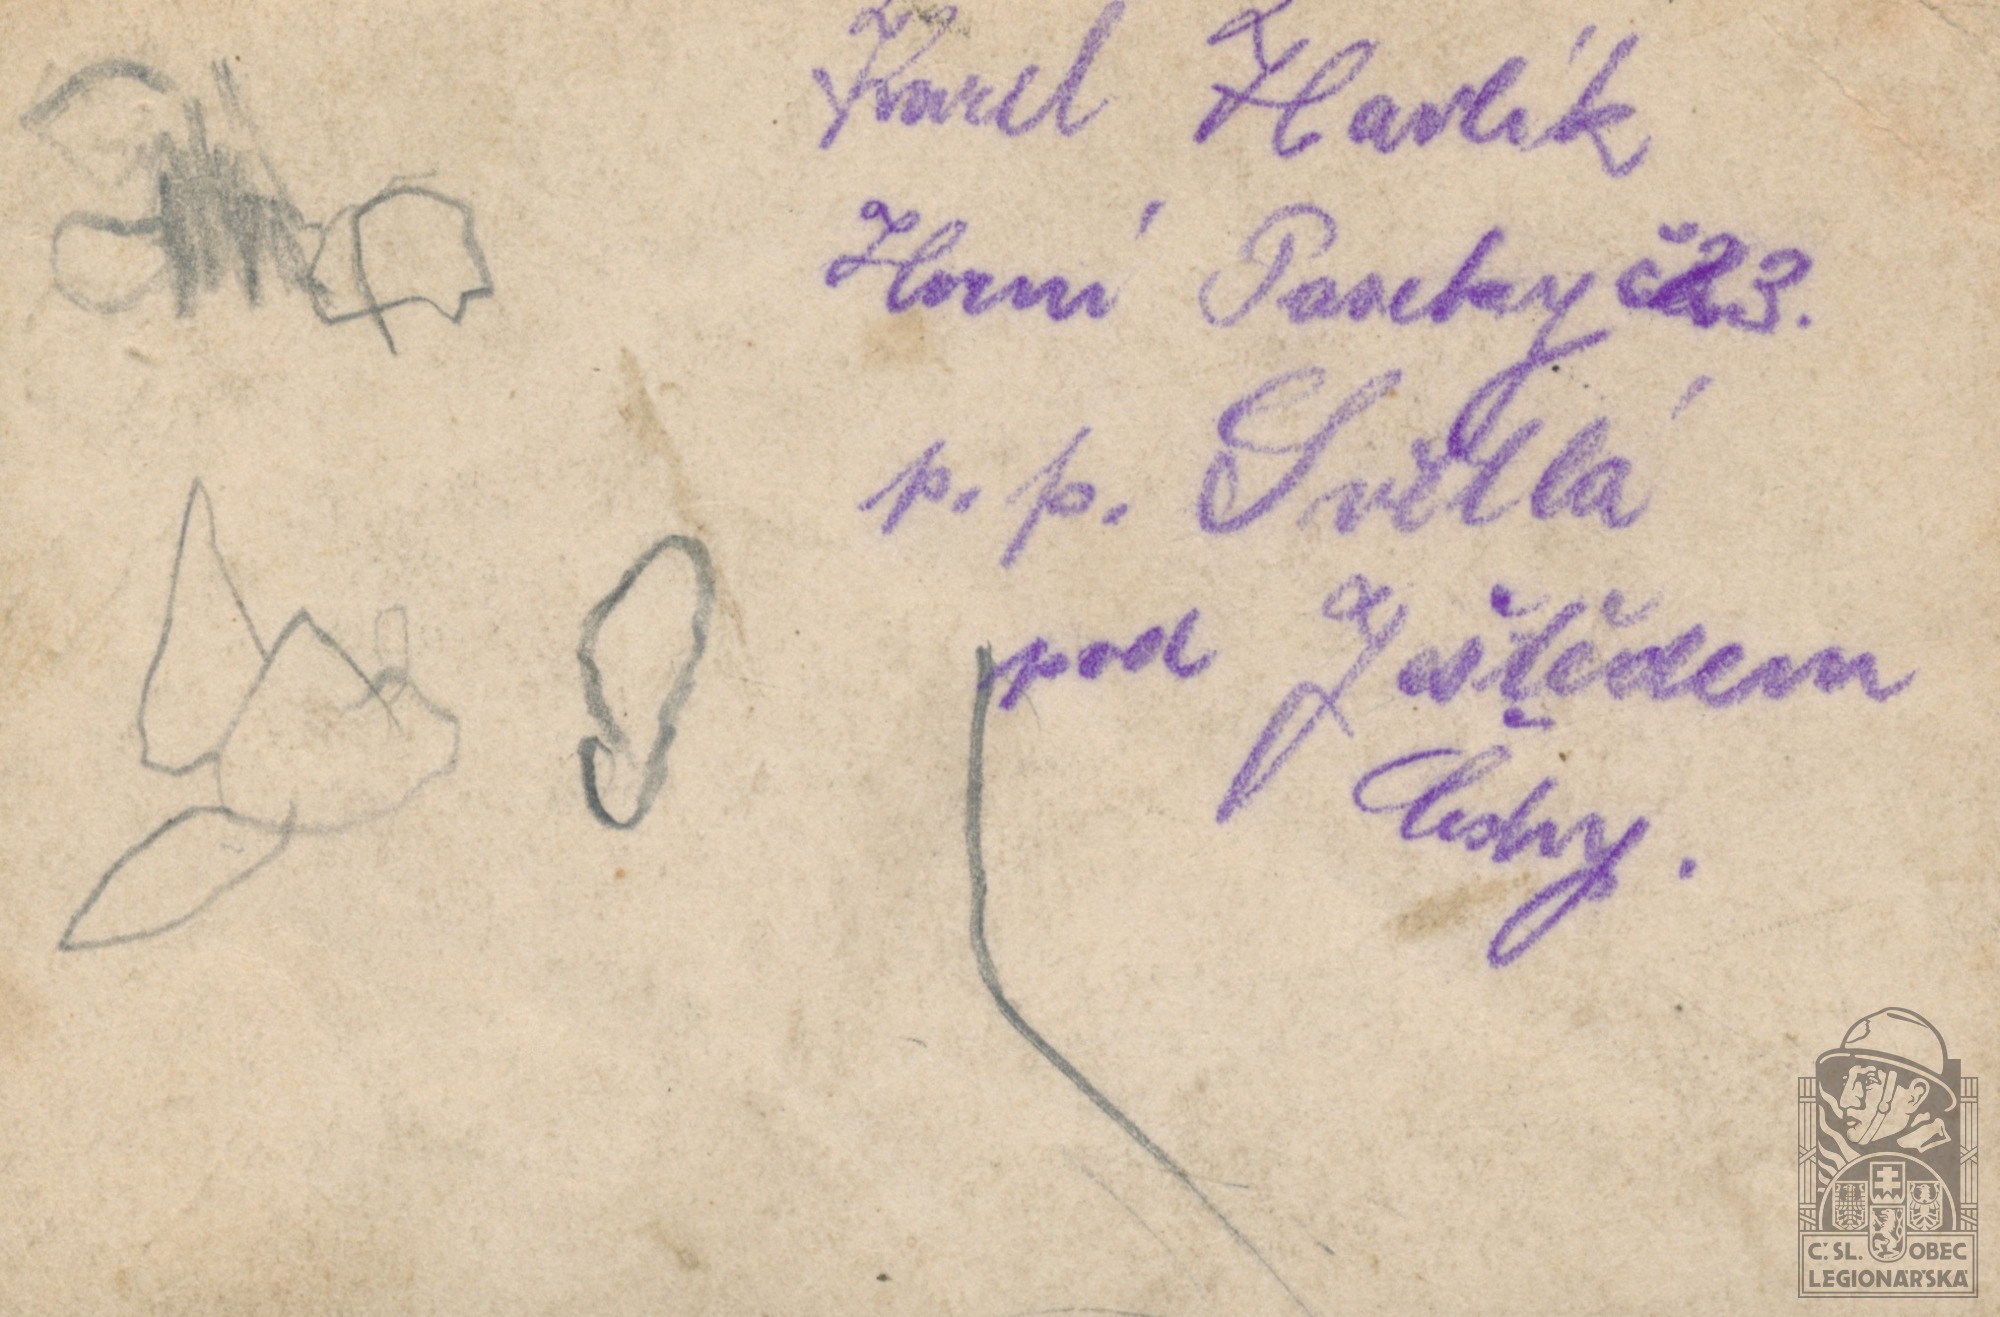 Karel Havlík
Horní Paseky č23.
p. p. Světlá
podJeštědem
Čechy.
Č.SL. OBEC
LEGIONÁŘSKÁ